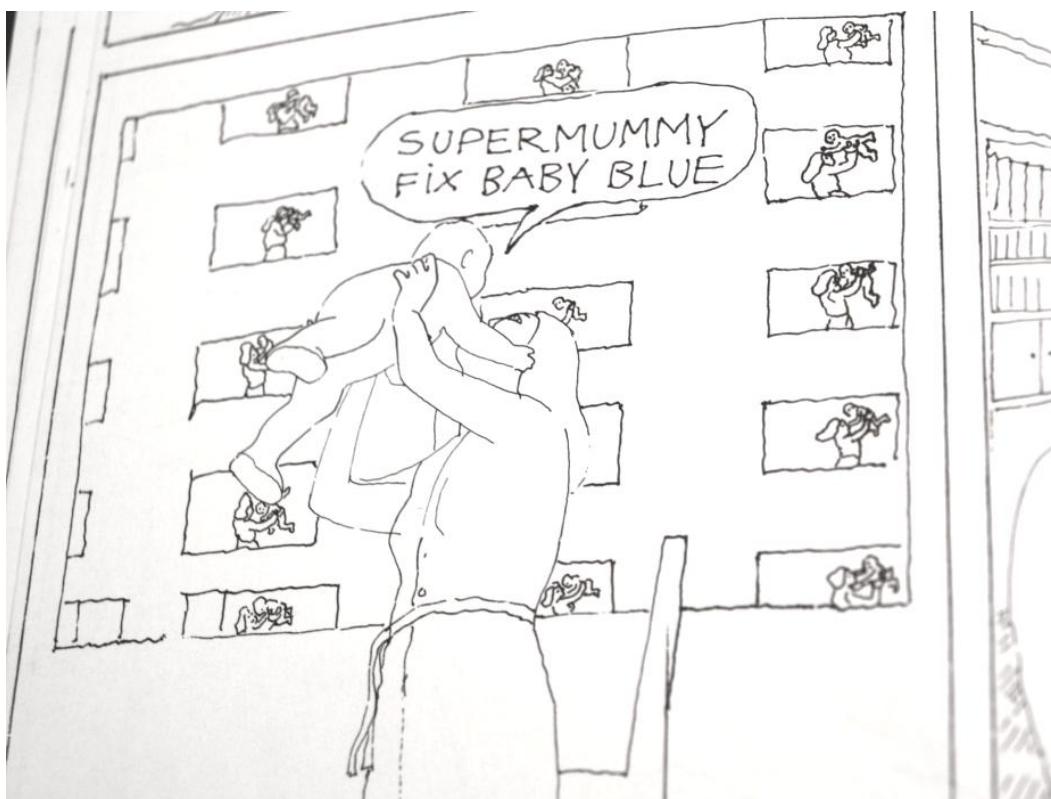 SUPERMUMMY
FiX BABY BLUE